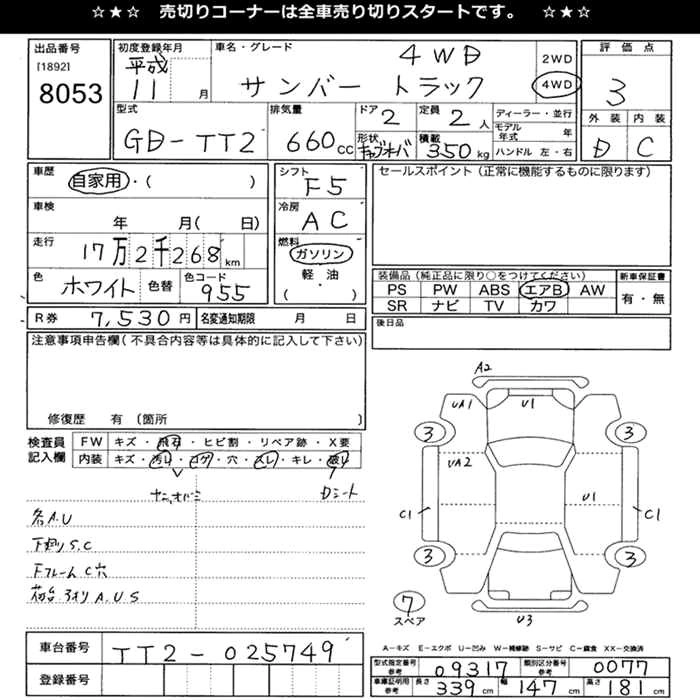 ☆★☆ 売切りコーナーは全車売り切りスタートです。 ☆★☆
出品番号
[1892]
8053
初度登録年月
平成
11 月
車名・グレード
4WD
サンバー トラック
2WD
4WD
評価点
3
外装 内装
D C
型式
GD-TT2
排気量
660cc
ドア 2
形状
定員 2人
積載 350kg
ディーラー・並行
モデル年式 年
ハンドル 左・右
車歴
自家用・( )
車検
年 月( 日)
走行
17万2千268km
色
ホワイト
色替
色コード
955
シフト
F5
冷房
AC
燃料
ガソリン
軽・油
( )
セールスポイント(正常に機能するものに限ります)
装備品(純正品に限り○をつけてください)
PS PW ABS エアB AW
SR ナビ TV カワ
新車保証書
有・無
後日品
R券 7,530円
名変通知期限 月 日
注意事項申告欄(不具合内容等は具体的に記入して下さい)
修復歴 有〔箇所 〕
検査員記入欄
FW キズ・飛石・ヒビ割・リペア跡・X要
内装 キズ・汚れ・コゲ・穴・スレ・キレ・破レ
Dシート
各A.U
下廻りS.C
Fフレーム C穴
荷台 アオリ A.U.S
A2
UA1
U1
3
3
UA2
U1
C1
C1
3
3
7
スペア
U3
A-キズ E-エクボ U-凹み W-補修跡 S-サビ C-腐食 XX-交換済
車台番号
TT2-025749
登録番号
型式指定番号 参考 09317
類別区分番号 参考 0077
車庫証明用 参考
長さ 339cm
幅 147cm
高さ 181cm